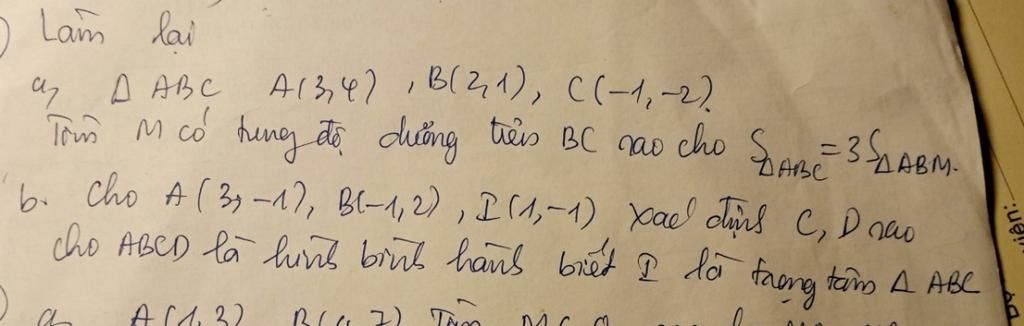 Làm lại
a, Δ ABC A(3,4), B(2,1), C(-1,-2).
Tìm M có tung độ dương trên BC sao cho S_ΔABC = 3S_ΔABM.
b. Cho A(3,-1), B(-1,2), I(1,-1) xác định C, D sao
cho ABCD là hình bình hành biết I là trọng tâm Δ ABC
A(1,3) Tìm
iên: